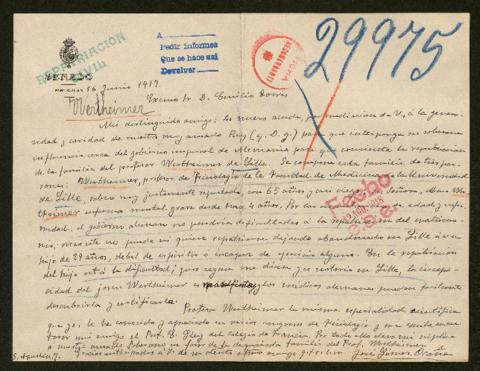 29975
A
Pedir informes
Que se hace así
Devolver
REPATRIACIÓN
CIVIL
SENADO
16 Junio 1917.
Wertheimer
Excmo Sr. D. Emilio
Mi distinguido amigo: de nuevo acudo, por mediación de V., a la genero-
sidad y caridad de nuestro muy amado Rey (q. D. g.) para que interponga su valiosa
influencia cerca del gobierno imperial de Alemania para que consienta la repatriación
de la familia del profesor Wertheimer de Lille. Se compone esta familia de tres per-
sonas: Wertheimer, profesor de Fisiología de la Facultad de Medicina de la Universidad
de Lille, sabio muy justamente reputado, con 65 años y casi ciego; su señora, Mme Wer-
theimer enferma mental grave desde hace 4 años. Por las de edad y enfer-
medad, el gobierno alemán no pondría dificultades a la repatriación del matrimo-
nio, mas este no puede ni quiere repatriarse dejando abandonado en Lille á un
hijo de 29 años, debil de espíritu é incapaz de oficio alguno. En la repatriación
del hijo está la dificultad; pero según me dicen y es notorio en Lille, la incapa-
cidad del joven Wertheimer es manifiesta y los médicos alemanes pueden facilmente
descubrirla y certificarla.
Profesor Wertheimer la misma especialidad científica
que yo, le he conocido y apreciado en varios congresos de Fisiología y me
mi amigo el Prof. E. Gley del Colegio de Francia. Por todo ello elevo mi súplica
a nuestro amado Soberano en favor de la desgraciada familia del Prof. Wertheimer.
S. Agustín, 7.
Gracias anticipadas á V. de su atento afmo amigo q. e. s. m.
José Gómez Ocaña
Fecho